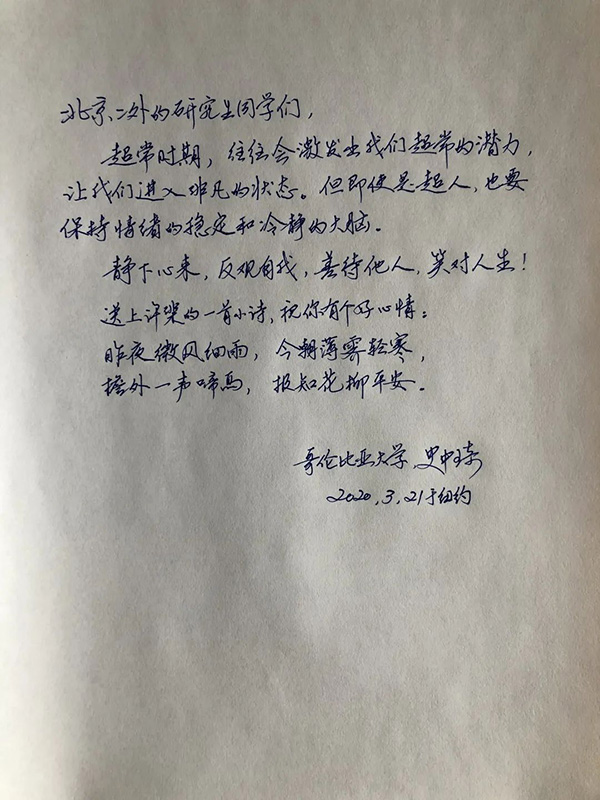 北京二外的研究生同学们，
超常时期，往往会激发出我们超常的潜力，
让我们进入非凡的状态。但即便是超人，也要
保持情绪的稳定和冷静的大脑。
静下心来，反观自我，善待他人，笑对人生！
送上许棐的一首小诗，祝你有个好心情：
昨夜微风细雨，今朝薄霁轻寒，
檐外一声啼鸟，报知花柳平安。
哥伦比亚大学 史中琦
2020.3.21于纽约